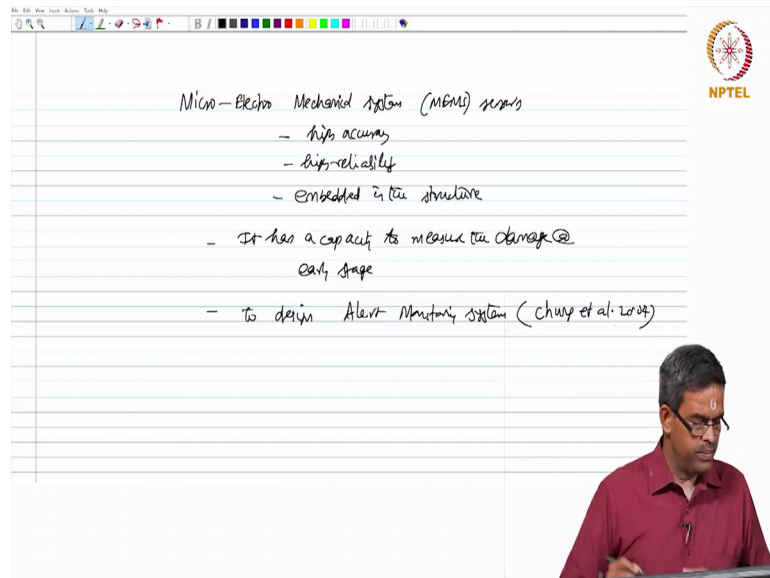 File Edit View Insert Actions Tools Help
B I
NPTEL
Micro-Electro Mechanical system (MEMS) sensors
- high accuracy
- high-reliability
- embedded in the structure
- It has a capacity to measure the damage @
early stage
- to design Alert Monitoring system (Chung et al. 2004)